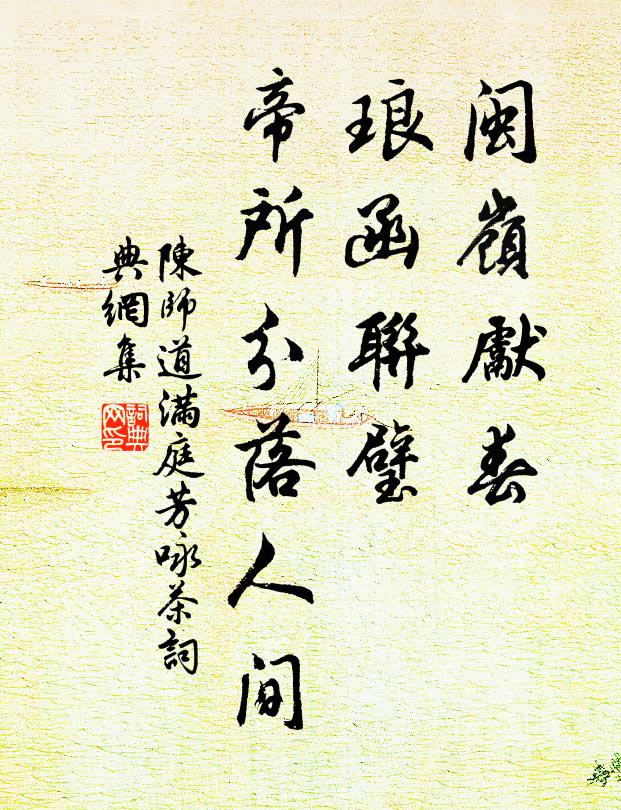 閩嶺獻春
琅函聯璧
帝所分落人间
陳師道滿庭芳咏茶詞
典網集
詞典
网印